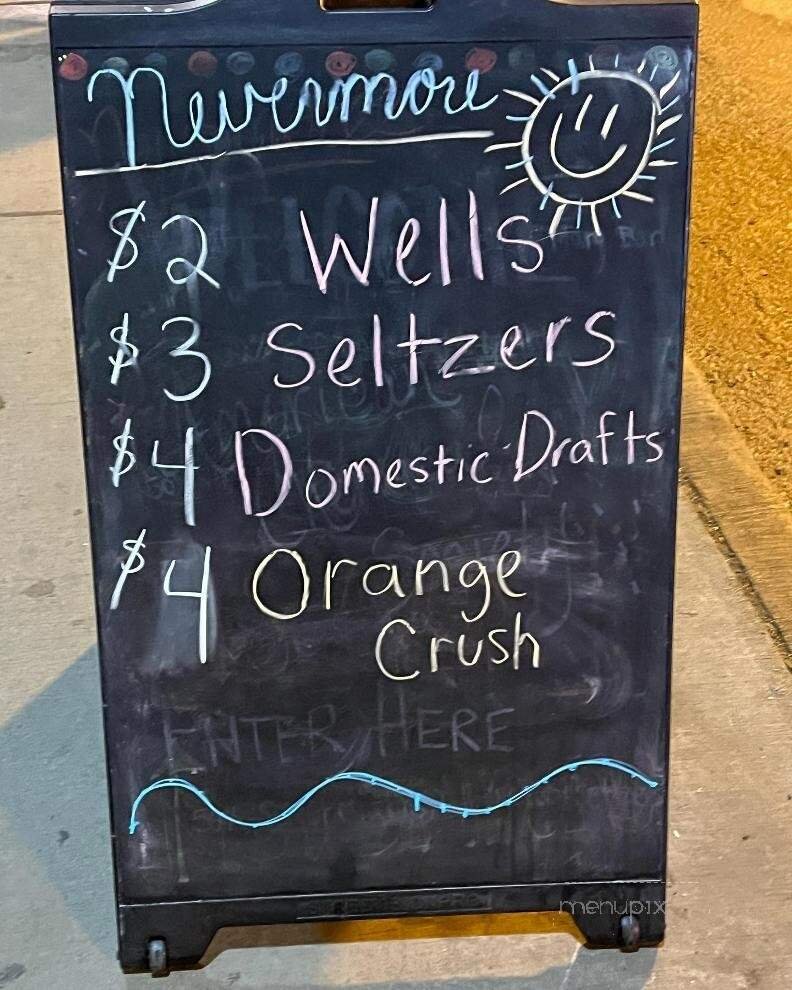 Nevermore
$2 Wells
$3 Seltzers
$4 Domestic Drafts
$4 Orange
Crush
ENTER HERE
menupix